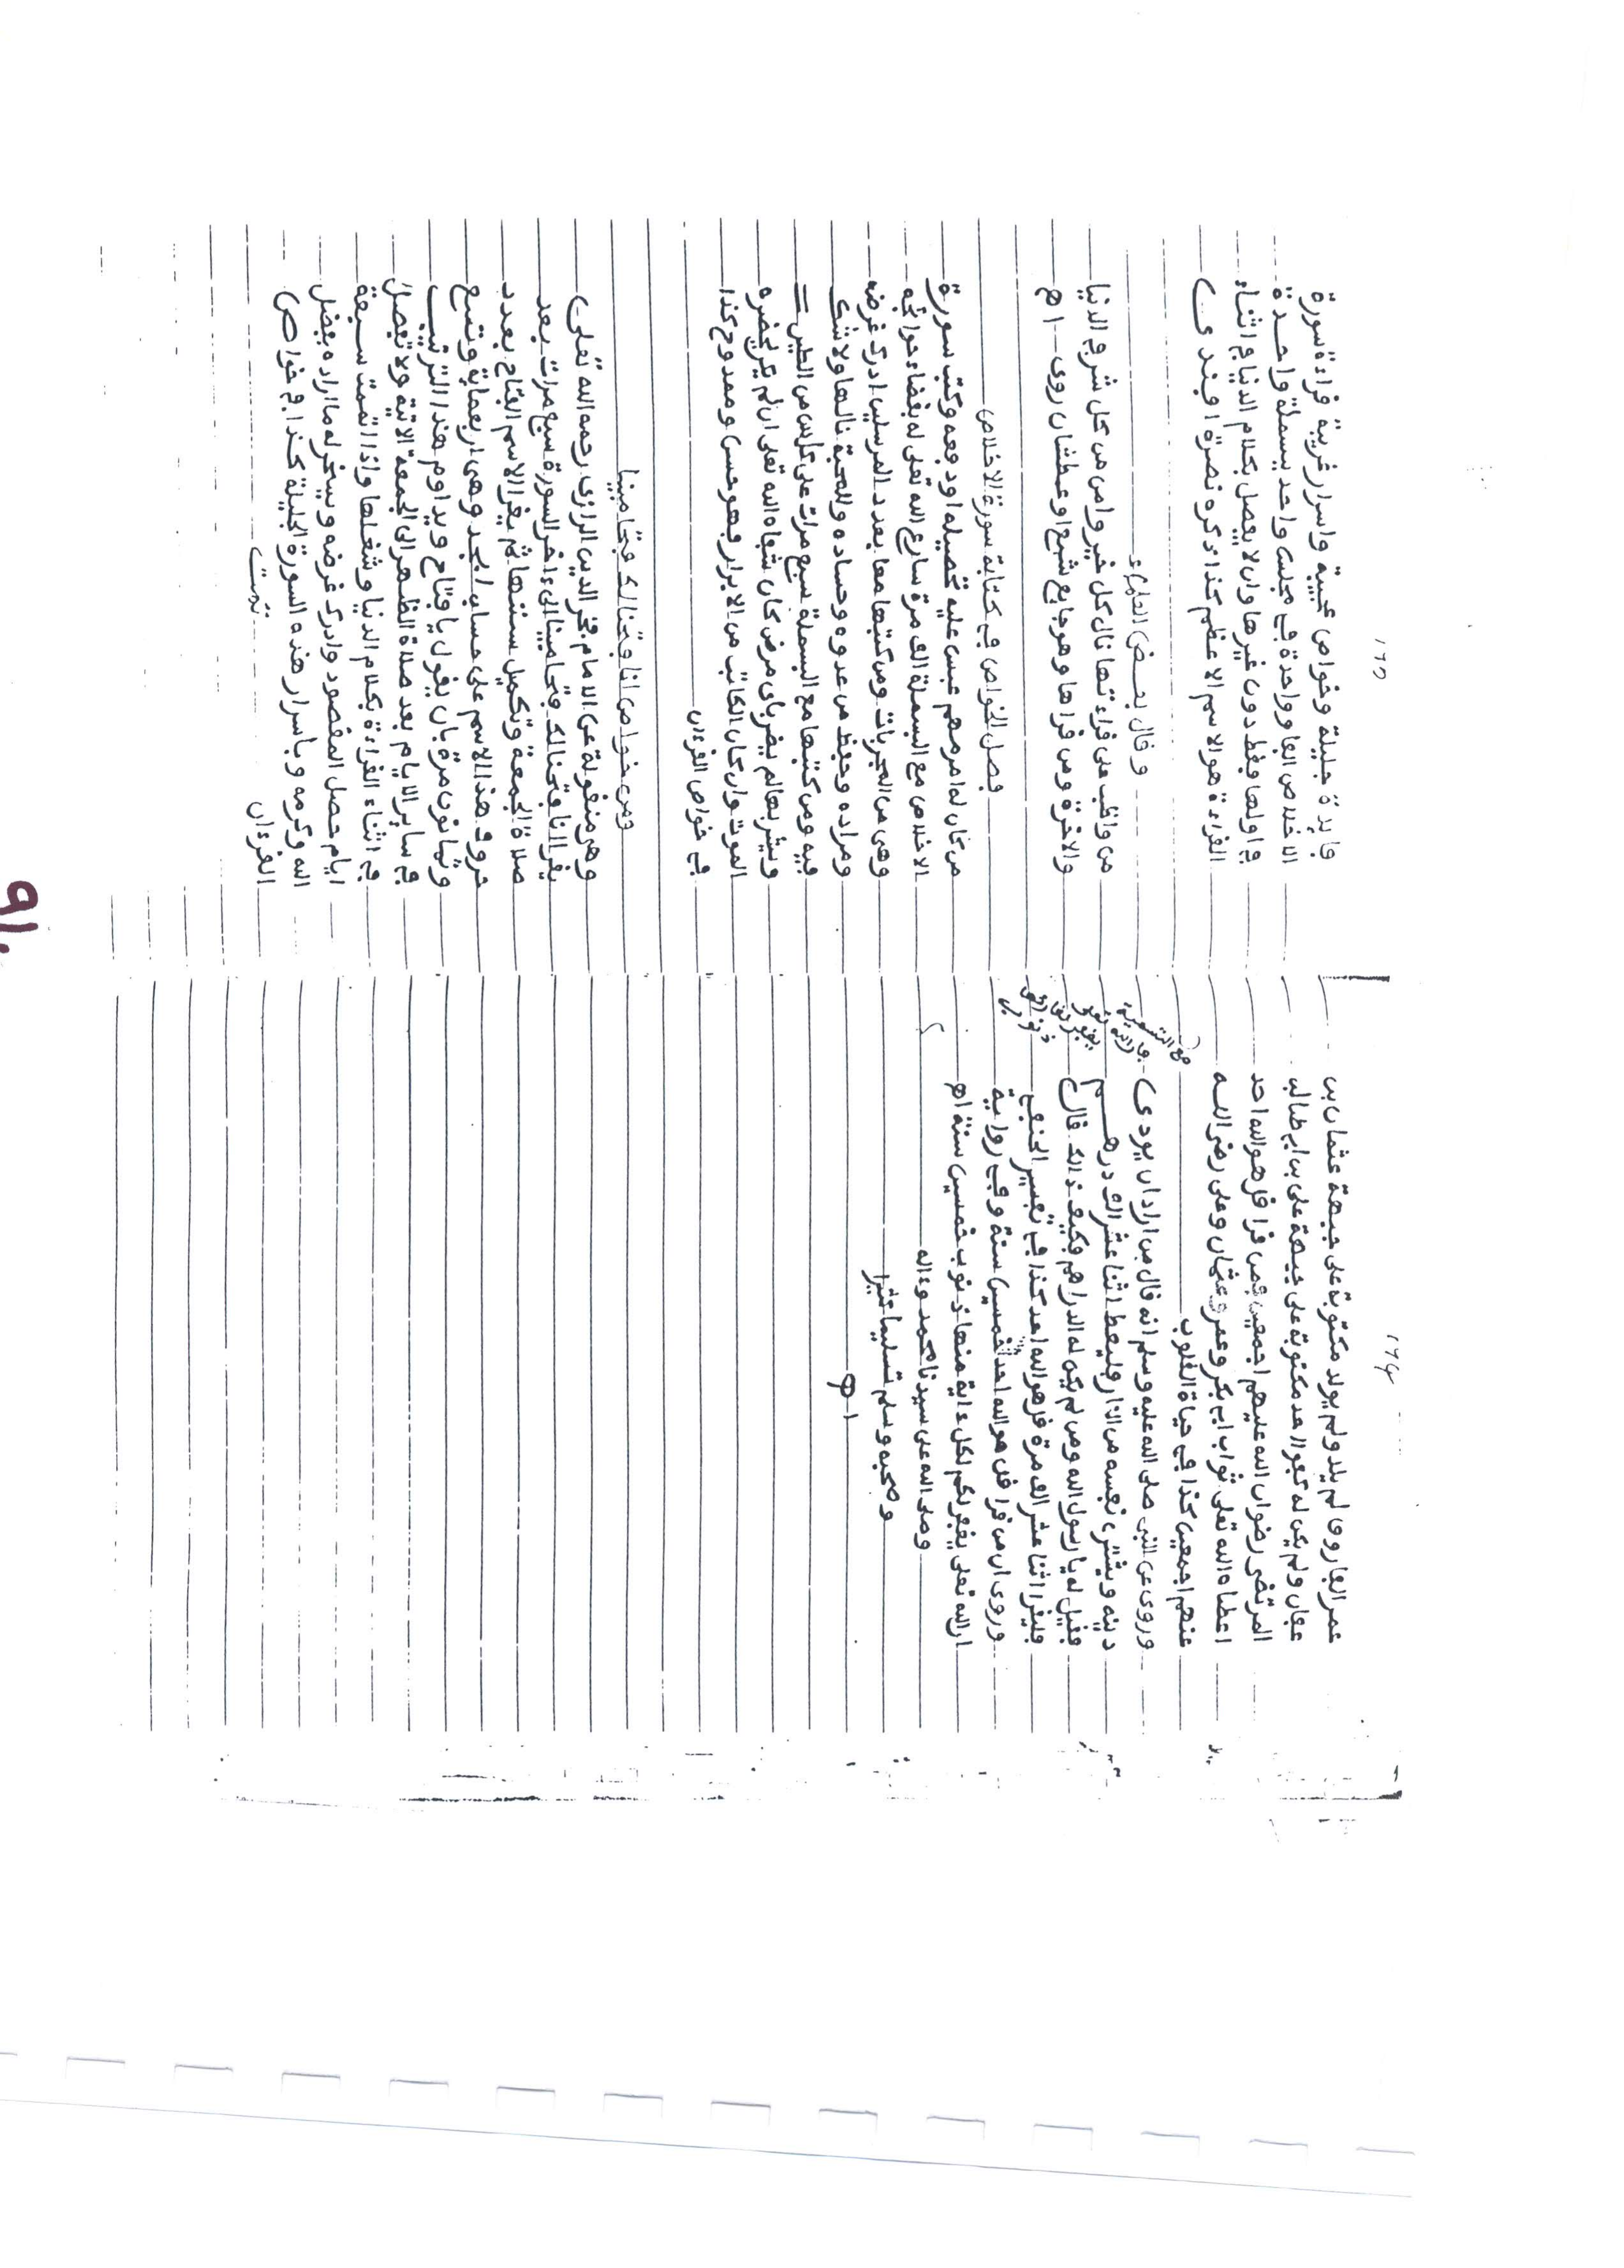 ١٦٤
عمر الفاروق لم يلد ولم يولد مكتوبة على جبهة عثمان بن
عفان ولم يكن له كفؤا احد مكتوبة على جبهة على بن ابى طالب
المرتضى رضوان الله عليهم اجمعين فمن قرا قل هو الله احد
اعطاه الله تعلى ثواب ابى بكر وعمر وعثمان وعلى رضى الله
عنهم اجمعين كذا فى حياة القلوب
وروى عن النبى صلى الله عليه وسلم انه قال من اراد ان يودى
دينه ويشترى نفسه من النار فليعط اثنا عشر الف درهم
فقيل له يا رسول الله ومن لم يكن له الدراهم فكيف ذالك قال
فليقرا اثنا عشر الف مرة قل هو الله احد كذا فى تفسير الحنفى
وروى ان من قرا قل هو الله احد خمسين سنة وفى رواية
ان الله تعلى يغفر لكم لكل ءاية منها ذنوب خمسين سنة اه
وصلى الله على سيدنا محمد وءاله
وصحبه وسلم تسليما كثيرا
١٦٥
فايدة جليلة وخواص عجيبة واسرار غريبة قراءة سورة
الاخلاص الفا وواحدة فى مجلس واحد ببسملة واحدة
فى اولها فقط دون غيرها وان لا يفصل بكلام الدنيا فى اثناء
القراءة هو الاسم الاعظم كذا ذكره نصرة افندى
وقال بعض العلماء
من واظب على قراءتها نال كل خير وامن من كل شر فى الدنيا
والاخرة ومن قراها وهو جايع شبع او عطشان روى اه
فصل الخواص فى كتابة سورة الاخلاص
من كان له امر مهم عسى عليه تحصيله او دفعه وكتب سورة
الاخلاص مع البسملة الف مرة سارع الله تعلى له بقضاء حوائجه
وهى من المجربات ومن كتبها معا بعدد المرسلين ادرك غرضه
ومراده وحفظ من عدوه وحساده وللمحبة نالها ولا شك
فيه ومن كتبها مع البسملة سبع مرات على كاس من الطين
ويشربها لم يضر باى مرض كان شفاه الله تعلى ان لم يكن يحضره
الموت وان كان الكاتب من الابرار فهو حسن وممدوح كذا
فى خواص القرءان
ومن خواص انا فتحنا لك فتحا مبينا
وهو منقولة عن الامام فخر الدين الرازى رحمه الله تعلى
يقرا انا فتحنا لك فتحا مبينا الى ءاخر السورة سبع مرات بعد
صلاة الجمعة وتكميل سننها ثم يقرا الاسم الفتاح بعدد
حروف هذا الاسم على حساب ابجد وهى اربعماية وتسع
وثمانون مرة بان يقول يا فتاح ويداوم هذا الترتيب
فى ساير الايام بعد صلاة الظهر الى الجمعة الاتية ولا يفصل
فى اثناء القراءة بكلام الدنيا وشغلها واذا اتممت سبعة
ايام حصل المقصود وادرك غرضه ويسخر له ما اراده بفضل
الله وكرمه وباسرار هذه السورة الجليلة كذا فى خواص
القرءان تمت
٩١٠